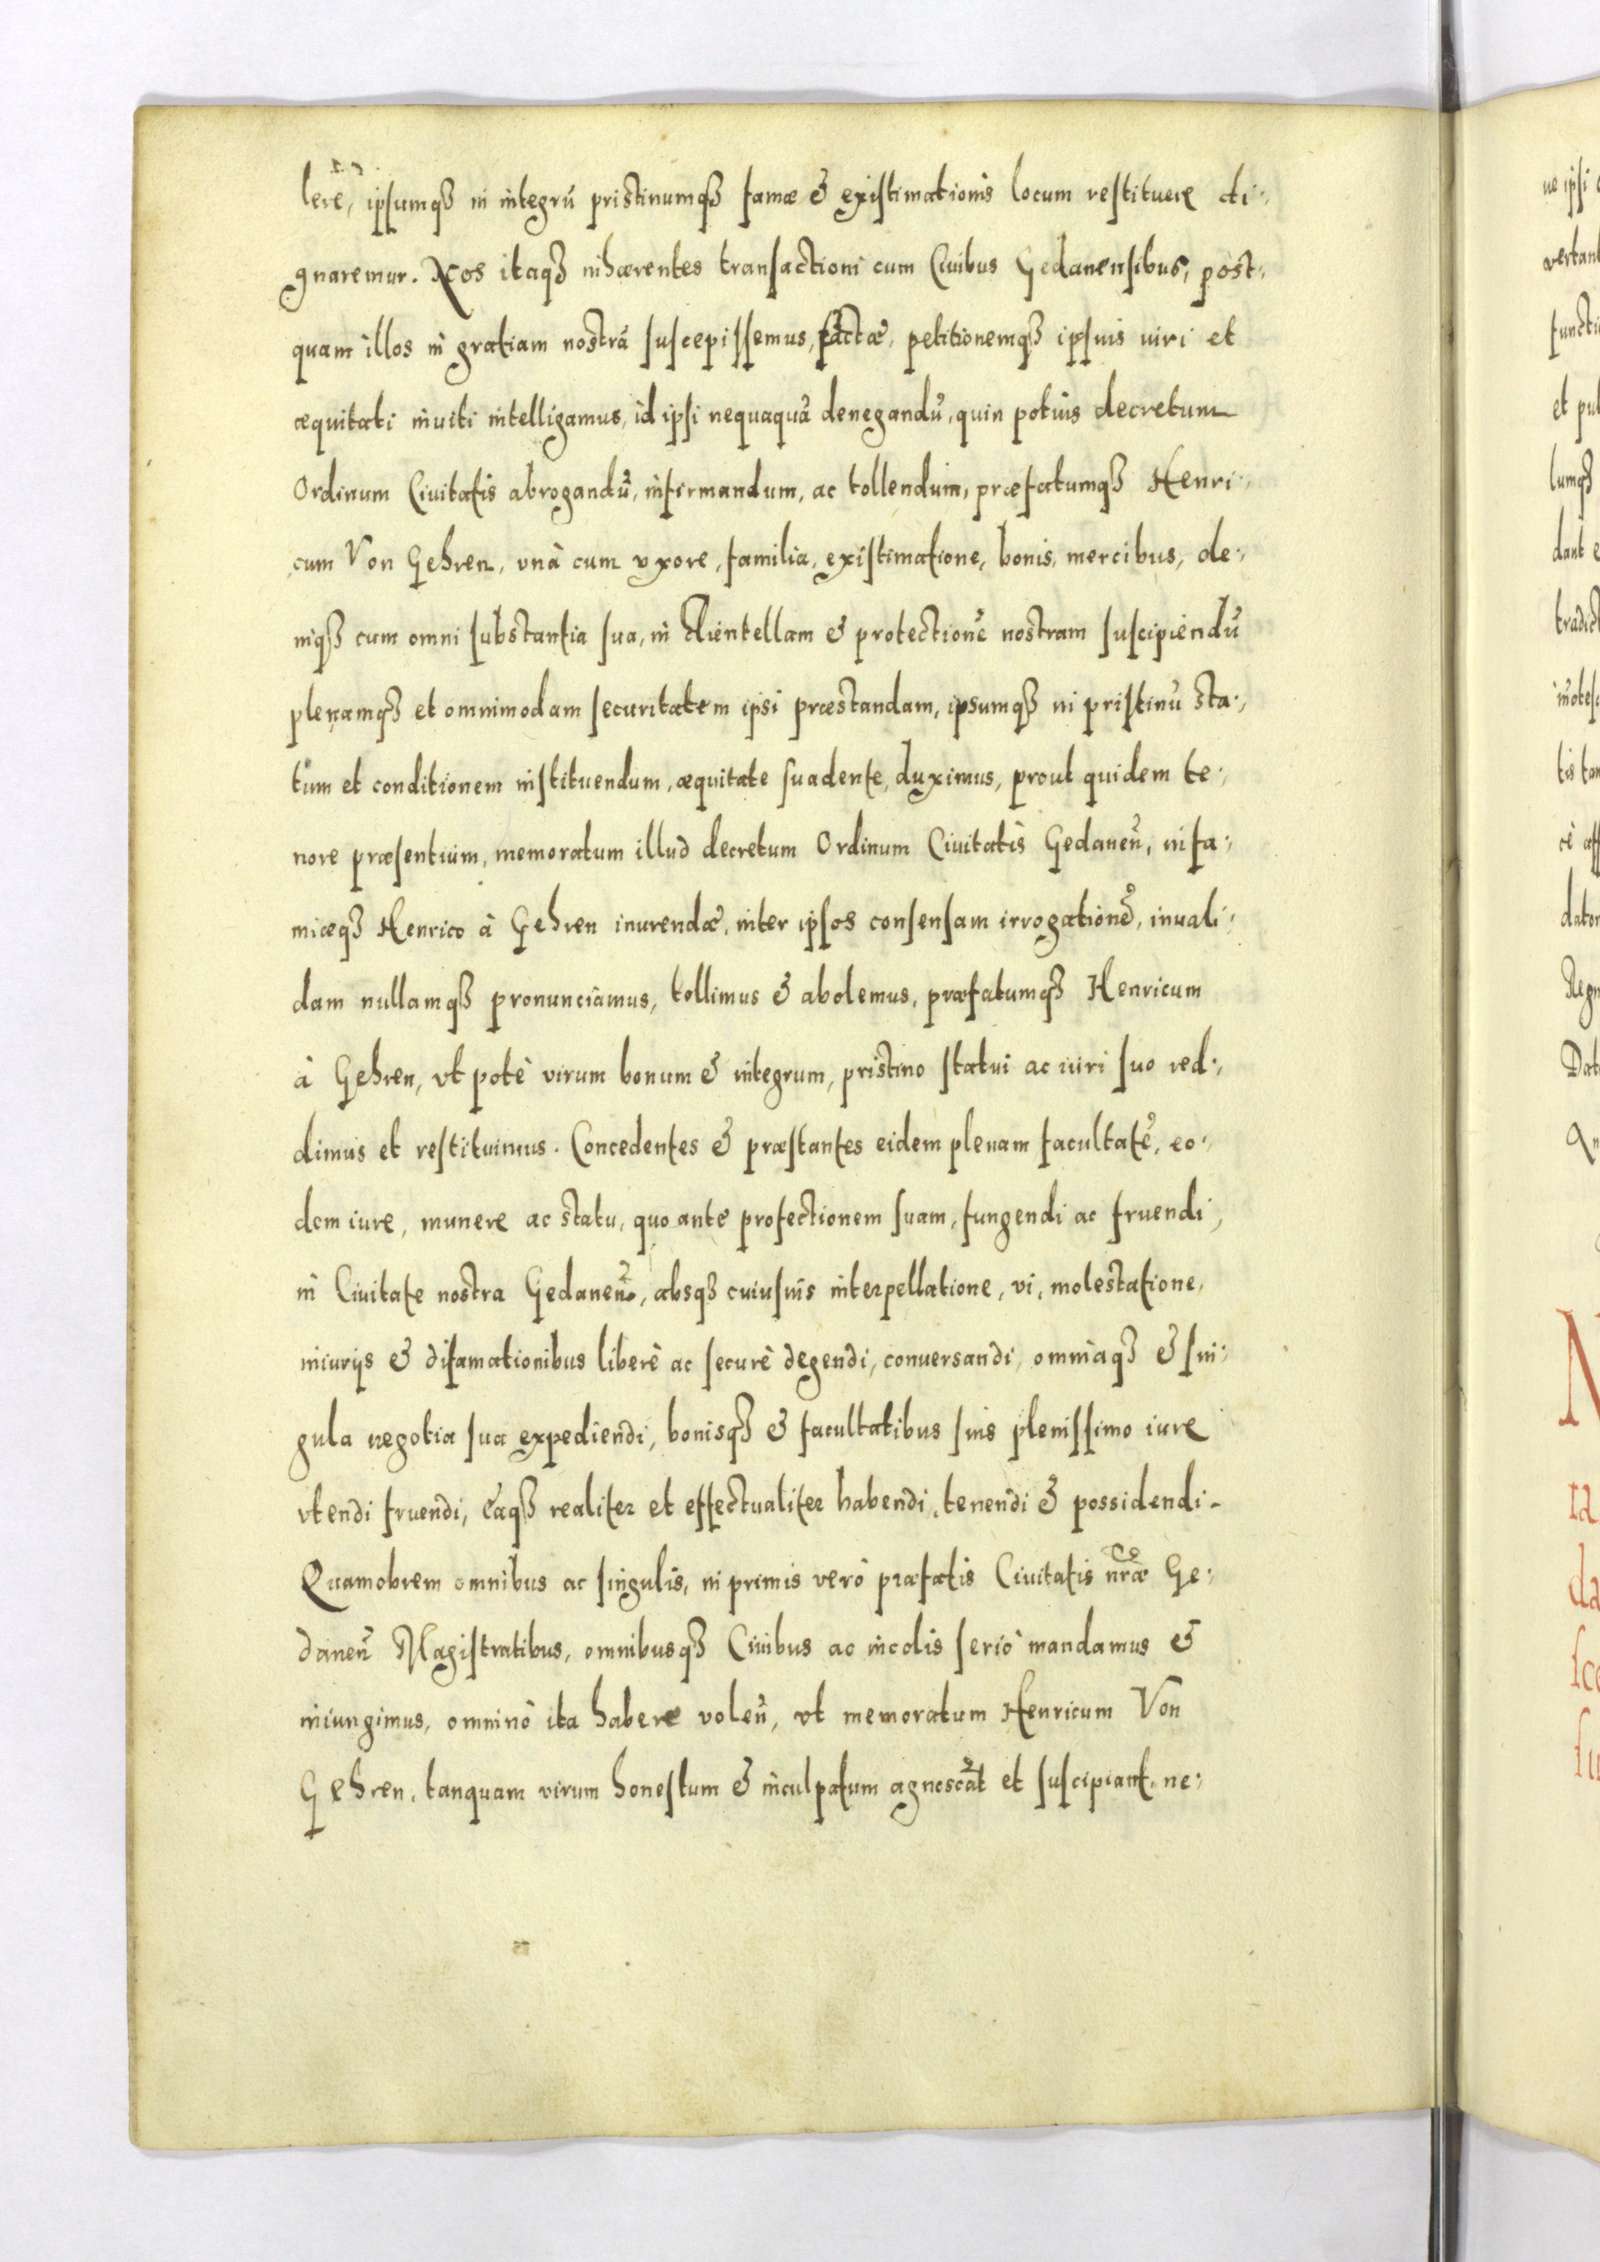 lerē, ipsumqȝ in integrū pristinumqȝ famæ & existimationis locum restituere di-
gnaremur. Nos itaqȝ inhærentes transactioni cum Ciuibus Gedanensibus, post-
quam illos in gratiam nostrā suscepissemus, factæ, petitionemqȝ ipsius uiri et
æquitati inniti intelligamus, id ipsi nequaquā denegandū, quin potius decretum
Ordinum Ciuitatis abrogandū, infirmandum, ac tollendum, præfatumqȝ Henri-
cum Von Gehren, vnà cum vxore, familia, existimatione, bonis, mercibus, de-
niqȝ cum omni substantia sua, in Clientellam & protectionē nostram suscipiendū
plenamqȝ et omnimodam securitatem ipsi præstandam, ipsumqȝ in pristinū sta-
tum et conditionem instituendum, æquitate suadente, duximus, prout quidem te-
nore præsentium, memoratum illud decretum Ordinum Ciuitatis Gedaneñ, infa-
miæqȝ Henrico à Gehren inurendæ, inter ipsos consensam irrogationē, inuali-
dam nullamqȝ pronunciamus, tollimus & abolemus, præfatumqȝ Henricum
à Gehren, vt potè virum bonum & integrum, pristino statui ac iuri suo red-
dimus et restituimus. Concedentes & præstantes eidem plenam facultatē, eo-
dem iure, munere ac statu, quo ante profectionem suam, fungendi ac fruendi,
in Ciuitate nostra Gedaneñ, absqȝ cuiusuis interpellatione, vi, molestatione,
iniurijs & difamationibus liberè ac securè degendi, conuersandi, omniaqȝ & sin-
gula negotia sua expediendi, bonisqȝ & facultatibus suis plenissimo iure
vtendi fruendi, eaqȝ realiter et effectualiter habendi, tenendi & possidendi.
Quamobrem omnibus ac singulis, in primis verò præfatis Ciuitatis nr̃æ Ge-
daneñ Magistratibus, omnibusqȝ Ciuibus ac incolis seriò mandamus &
iniungimus, omninò ita habere voleñ, vt memoratum Henricum Von
Gehren, tanquam virum honestum & inculpatum agnoscāt et suscipiant, ne-